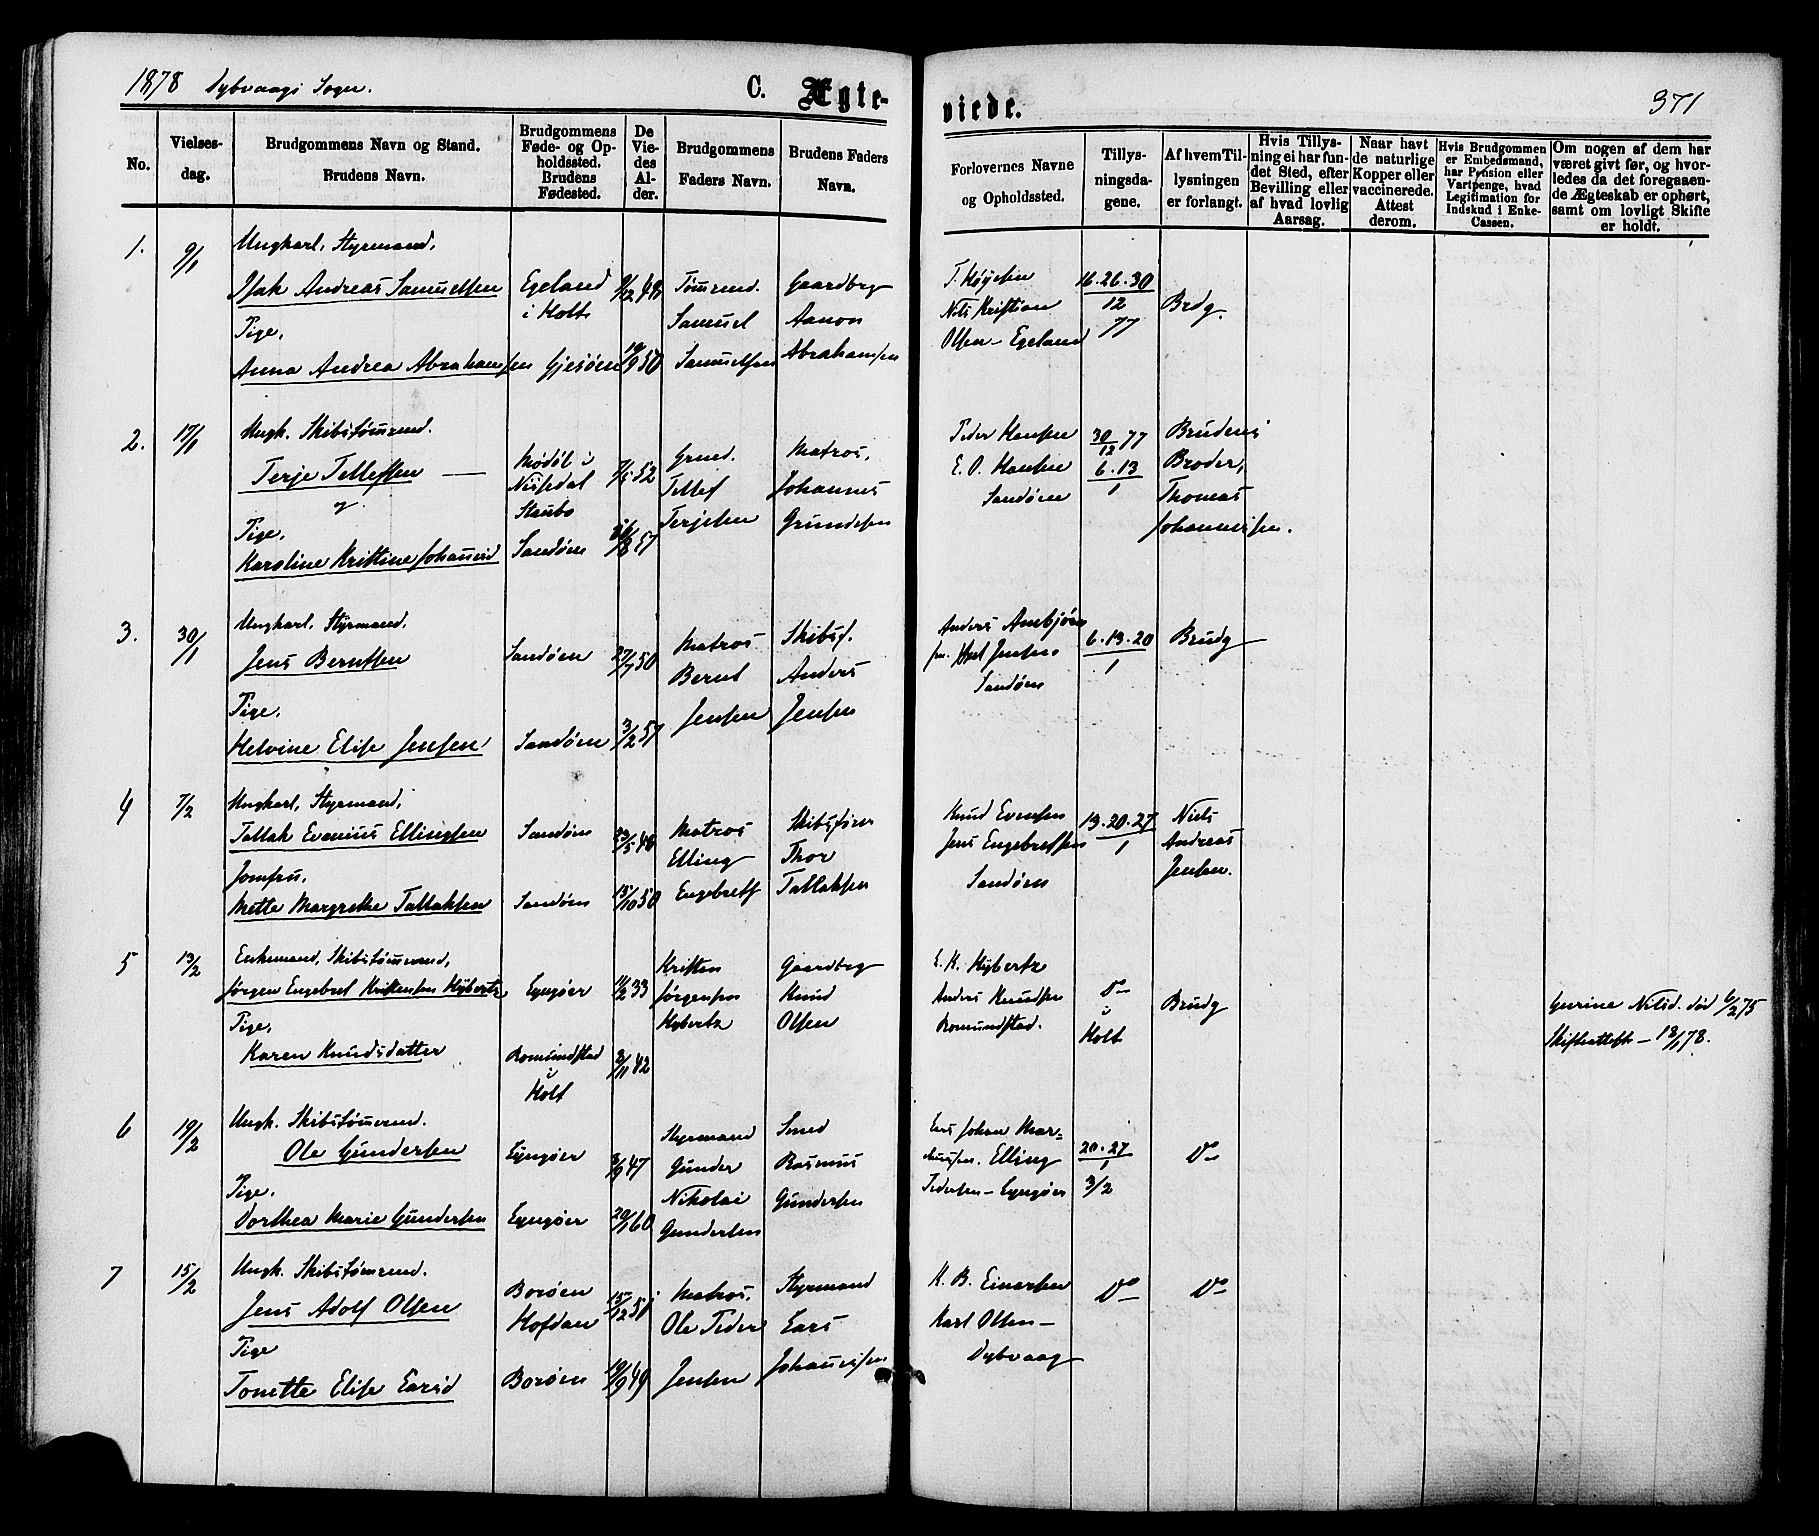 1878 Dybvaags Sogn.
C. Ægte-
viede.
371
No.
Vielses-
dag.
Brudgommens Navn og Stand.
Brudens Navn.
Brudgommens
Føde- og Op-
holdssted.
Brudens
Fødested.
De
Vie-
des
Al-
der.
Brudgommens
Faders Navn.
Brudens Faders
Navn.
Forlovernes Navne
og Opholdssted.
Tillys-
ningsda-
gene.
Af hvem Til-
lysningen
er forlangt.
Hvis Tillys-
ning ei har fun-
det Sted, efter
Bevilling eller
af hvad lovlig
Aarsag.
Naar havt
de naturlige
Kopper eller
vaccinerede.
Attest
derom.
Hvis Brudgommen
er Embedsmand,
har Pension eller
Vartpenge, hvad
Legitimation for
Indskud i Enke-
Cassen.
Om nogen af dem har
været givt før, og hvor-
ledes da det foregaaen-
de Ægteskab er ophørt,
samt om lovligt Skifte
er holdt.
1.
9/1
Ungkarl, Styrmand,
Isak Andreas Samuelsen
Pige,
Anna Andrea Abrahamsen
Egeland
i Holt
Gjesøen
9/12 48
19/9 50
Tømrmd.
Samuel
Samuelsen
Gaardbrg
Aanon
Abrahamsen
T. Køyesen
Nils Kristian
Olsen - Egeland
16.26.30
12
77
Brdg.
2.
17/1
Ungk. Skibstømrmd.
Terje Tellefsen
og
Pige,
Karoline Kristine Johannesd
Nissedal
Staubo
Sandøen
7/5 52
/8 57
Grmd.
Tellef
Terjesen
Matros,
Johannes
Grundesen
Peder Hansen
E. O. Hansen
Sandøen
30/12 77
6.13
1
Brudens
Broder,
Thomas
Johannessen.
3.
30/1
Ungkarl, Styrmand,
Jens Berntsen
Pige,
Helvine Elise Jensen
Sandøen
Sandøen
27/7 50
3/2 57
Matros
Bernt
Jensen
Skibsf.
Anders
Jensen
Anders Ambjørn
sen. Axel Jensen
Sandøen
6.13.20
1
Brudg
4
7/2
Ungkarl, Styrmand,
Tallak Evanius Ellingsen
Jomfru,
Mette Margrethe Tallaksen
Sandøen
Sandøen
23/5 48
15/10 50
Matros
Elling
Engebrets
Skibsfører
Thor
Tallaksen
Knud Evensen
Jens Engebretsen
Sandøen
13.20.27
1
Niels
Andreas
Jensen.
5
13/2
Enkemand, Skibstømrmd,
Jørgen Engebret Kristensen Hybertz
Pige,
Karen Knudsdatter
Lyngøer
Romundstad
i
Holt
11/2 33
2/11 42
Kristen
Jørgensen
Hybertz
Gaardbrg
Knud
Olsen
E. K. Hybertz
Anders Knudsen
Romundstad.
Do
i
Holt
Brudg
Gurine Nilsd. død 6/2 75
Skifteattest - 18/1 78.
6
19/2
Ungk. Skibstømrmd.
Ole Gundersen
Pige.
Dorthea Marie Gundersen
Lyngøer
Lyngøer
3/9 47
20/1 60
Styrmand
Gunder
Nikolai
Gundersen
Smed
Rasmus
Gundersen
Lars Johan Mar-
kussen. Elling
Pedersen - Lyngøer
20.27
1
3/2
Do
7
15/2
Ungk. Skibstømrmd.
Jens Adolf Olsen
Pige
Tonette Elise Larsd
Borøen
Hofdan
Borøen
15/12 50
19/9 49
Matros.
Ole Peder
Jensen
Styrmand
Lars
Johannesen
K. B. Einarsen
Karl Olsen -
Dybvaag
Do
Do